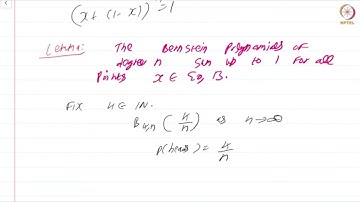 NPTEL
(x + (1 - x))^n = 1
Lemma: The Bernstein Polynomials of
degree n sum up to 1 for all
Points x ∈ [0, 1].
Fix k ∈ ℕ.
B_{k,n} (k/n) as n → ∞
P(heads) = k/n